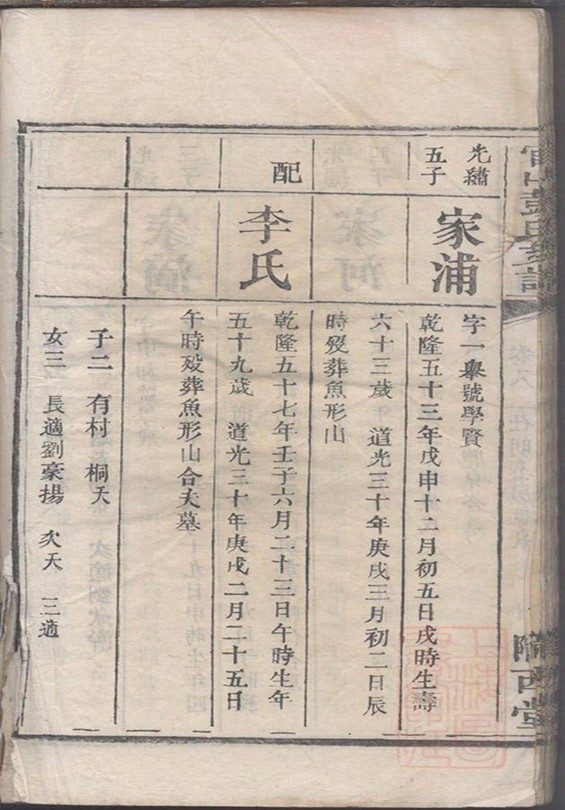 光繡
五子
家浦
字一舉號學賢
乾隆五十三年戊申十二月初五日戌時生壽
六十三歲 道光三十年庚戌三月初二日辰
時歿葬魚形山
配
李氏
乾隆五十七年壬子六月二十三日午時生年
五十九歲 道光三十年庚戌二月二十五日
午時歿葬魚形山合夫墓
子二 有村 桐夭
女三 長適劉豪揚 次夭 三適
隴西堂